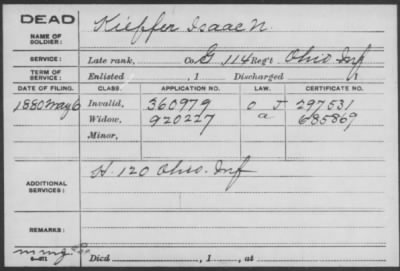 DEAD
NAME OF SOLDIER: Kieffer Isaac N.
SERVICE: Late rank, Co. G 114 Reg't Ohio Inf
TERM OF SERVICE: Enlisted , 1 Discharged , 1
DATE OF FILING. CLASS. APPLICATION NO. LAW. CERTIFICATE NO.
1880 May 6 Invalid, 360979 O J 297531
Widow, 920227 a 685869
Minor,
ADDITIONAL SERVICES: H. 120 Ohio. Inf
REMARKS:
Died , 1 , at